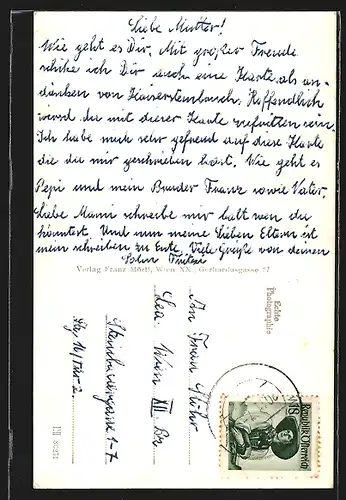 Liebe Mutter!
Wie geht es Dir. Mit großer Freude
schike ich Dir auch eine Karte, als an-
dänken von Kaisersteinbruch. Hoffendlich
wirst du mit dieser Karte zufritten sein.
Ich habe mich sehr gefreut auf diese Karte
die du mir geschrieben hast. Wie geht es
Pepi und mein Bruder Franz sowie Vater.
Liebe Mami schreibe mir halt wen du
könntest. Und nun meine Lieben Eltern ist
mein schreiben zu Ente. Viele Grüße von deinen
Sohn
Verlag Franz Mörtl, Wien XX., Gerhardusgasse 27
Echte
Photographie
An Frau
Wien XII
1-7
Republik Österreich
1S